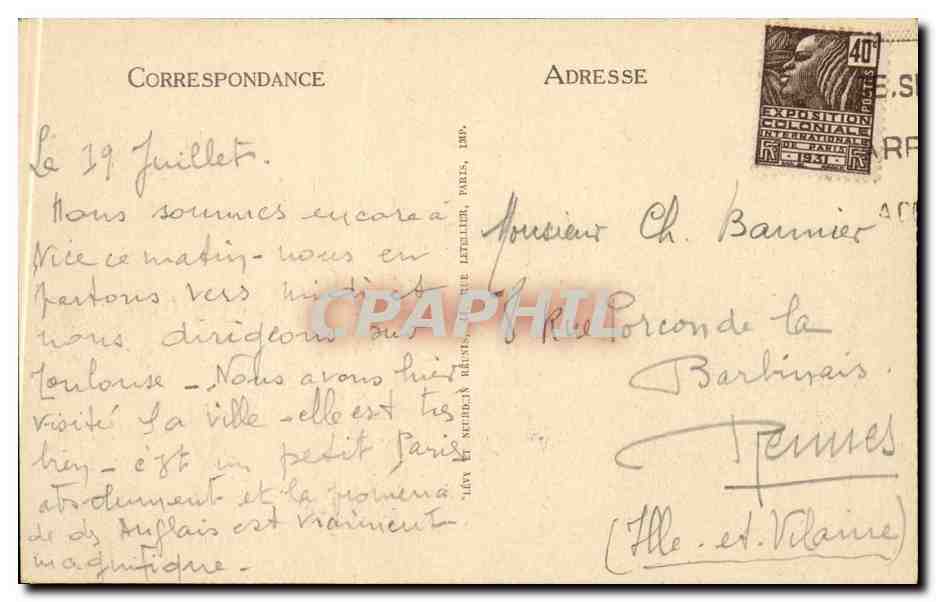 CORRESPONDANCE
Le 19 Juillet.
Nous sommes encore à
Nice ce matin - nous en
partons vers midi et
nous dirigeons sur
Toulouse - Nous avons hier
visité la ville - elle est très
bien - c'est un petit Paris
absolument et la promena
de des Anglais est vraiment
magnifique -
LÉVY ET NEURDEIN RÉUNIS, RUE LETELLIER, PARIS, IMP.
ADRESSE
40c
POSTES
EXPOSITION
COLONIALE
INTERNATIONALE
DE PARIS
1931
Monsieur Ch. Bannier
8 Rue Porcon de la
Barbinais.
Rennes
(Ille-et-Vilaine)
CPAPHIL